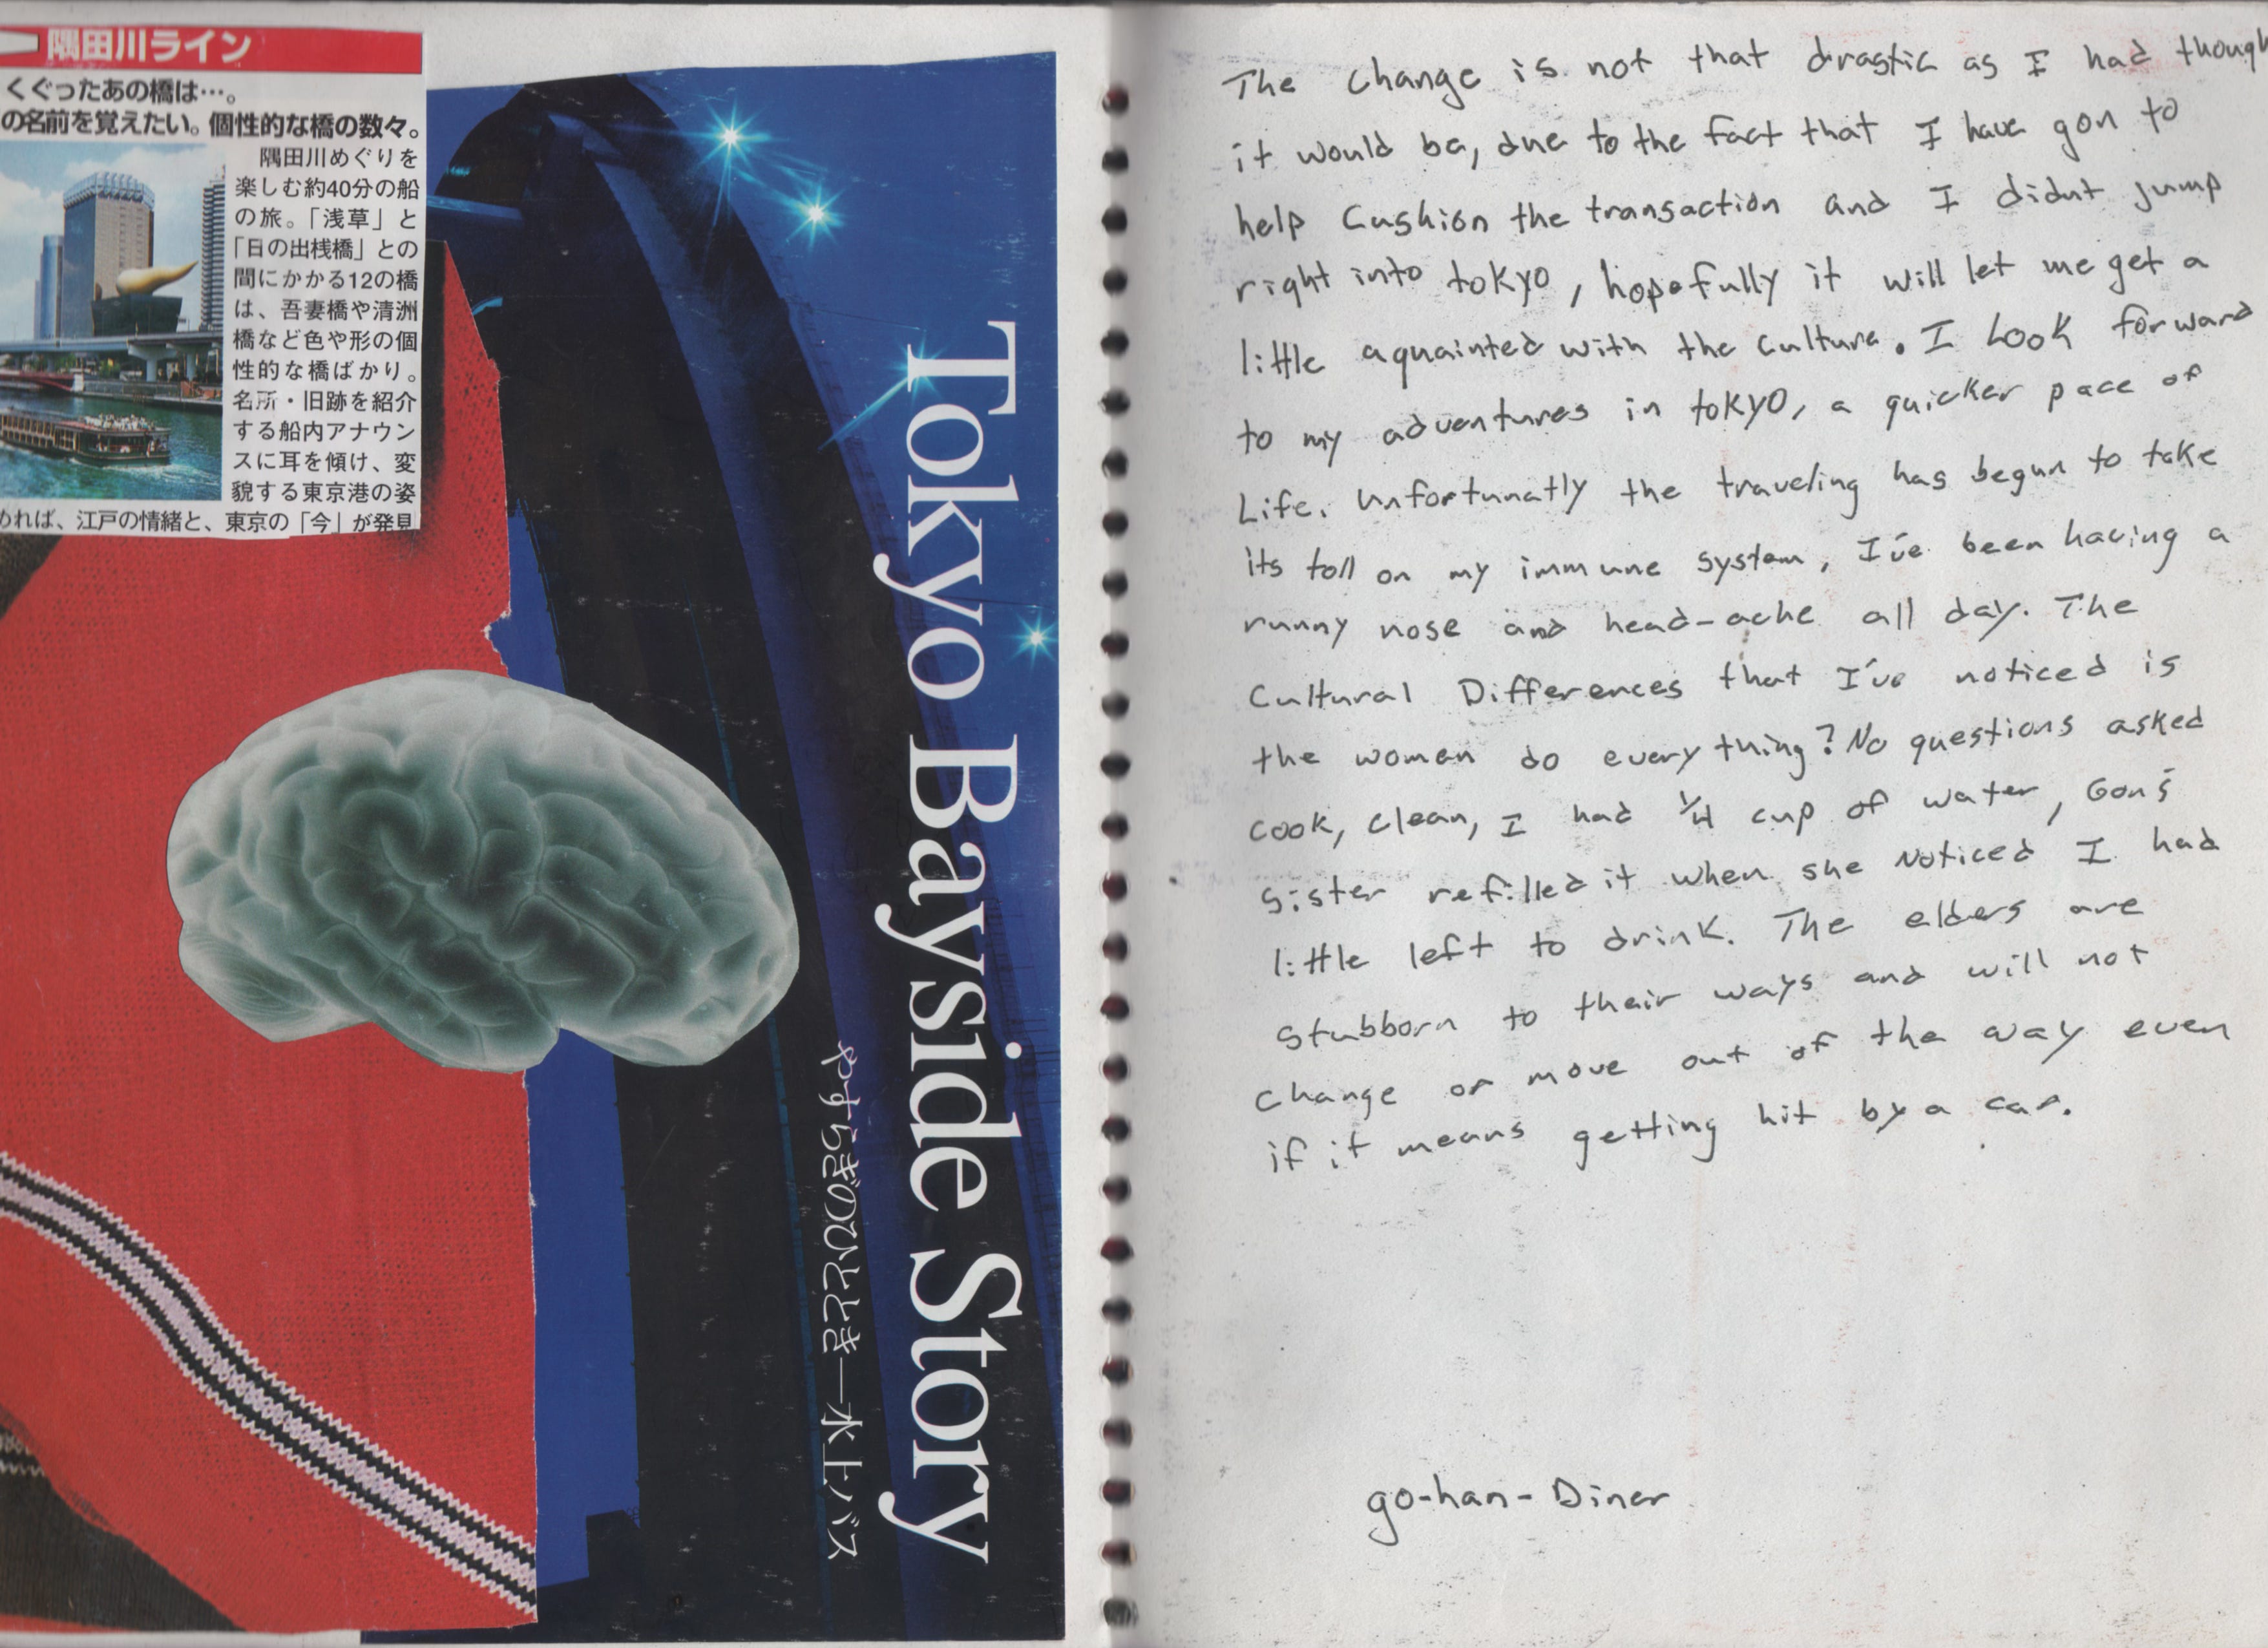 隅田川ライン
くぐったあの橋は…。
の名前を覚えたい。個性的な橋の数々。
隅田川めぐりを
楽しむ約40分の船
の旅。「浅草」と
「日の出桟橋」との
間にかかる12の橋
は、吾妻橋や清洲
橋など色や形の個
性的な橋ばかり。
名所・旧跡を紹介
する船内アナウン
スに耳を傾け、変
貌する東京港の姿
めれば、江戸の情緒と、東京の「今」が発見
Tokyo Bayside Story
やすらぎのひととき—水上バス
The change is not that drastic as I had though
it would be, due to the fact that I have gon to
help Cushion the transaction and I didnt jump
right into tokyo, hopefully it will let me get a
little aquainted with the culture. I Look forward
to my adventures in tokyo, a quicker pace of
Life. Unfortunatly the traveling has begun to take
its toll on my immune system, I've been having a
runny nose and head-ache all day. The
Cultural Differences that I've noticed is
the women do every thing? No questions asked
cook, clean, I had 1/4 cup of water, Gon's
sister refilled it when she Noticed I had
little left to drink. The elders are
stubborn to their ways and will not
change or move out of the way even
if it means getting hit by a car.
go-han-Diner